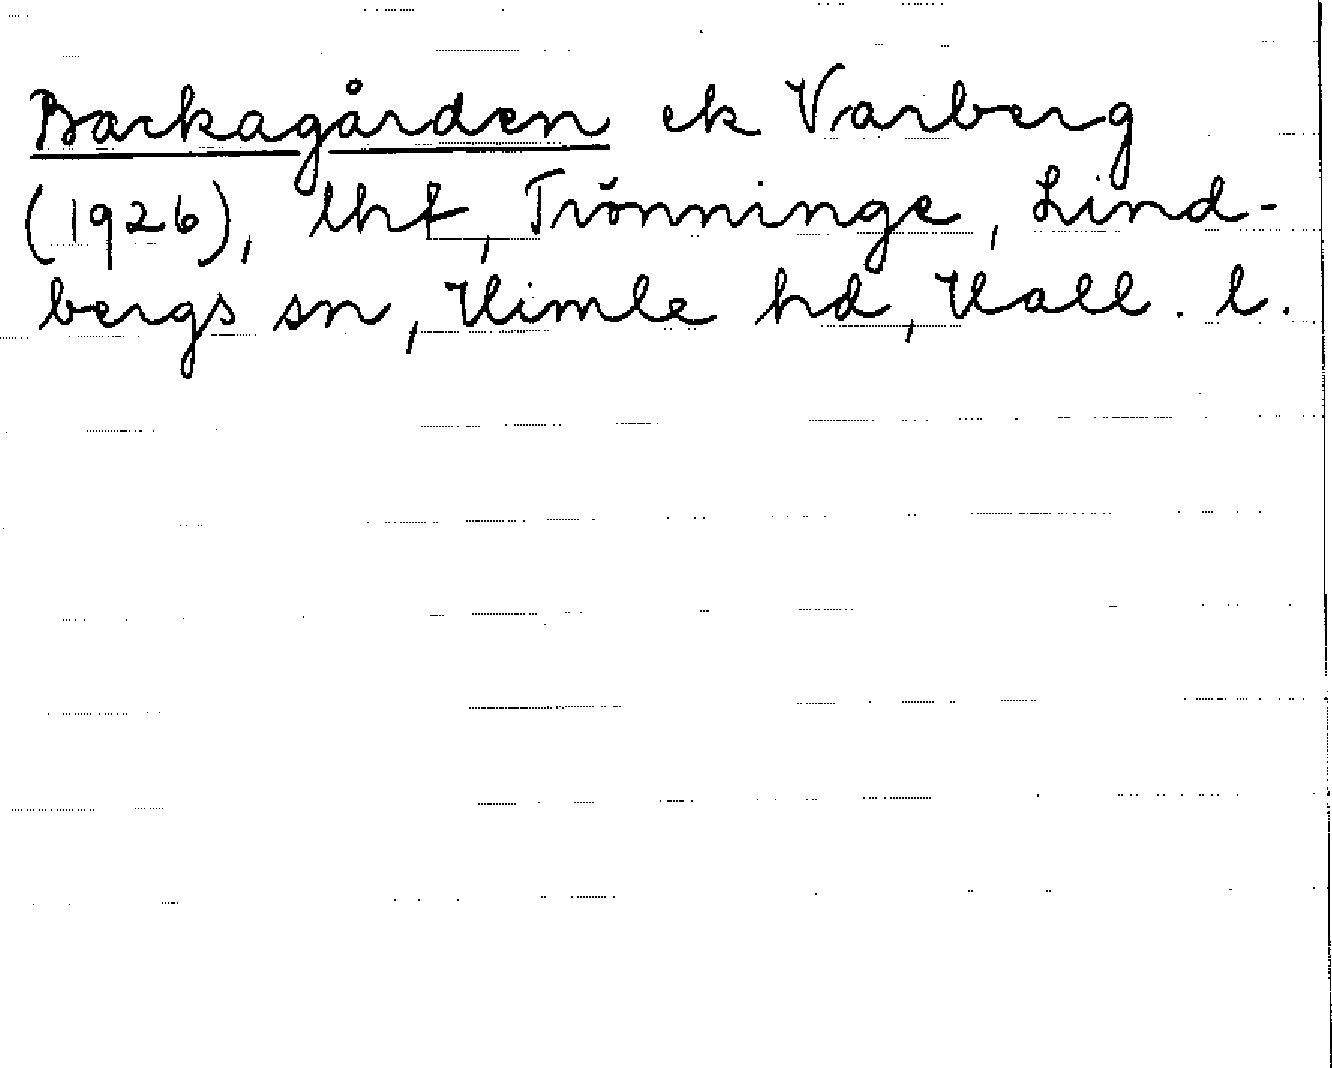 Backagården ek Varberg
(1926), lht, Trönninge, Lind-
bergs sn, Himle hd, Hall. l.